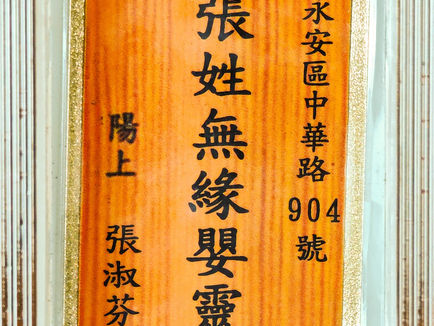 永安區中華路904號
張姓無緣嬰靈
陽上 張淑芬